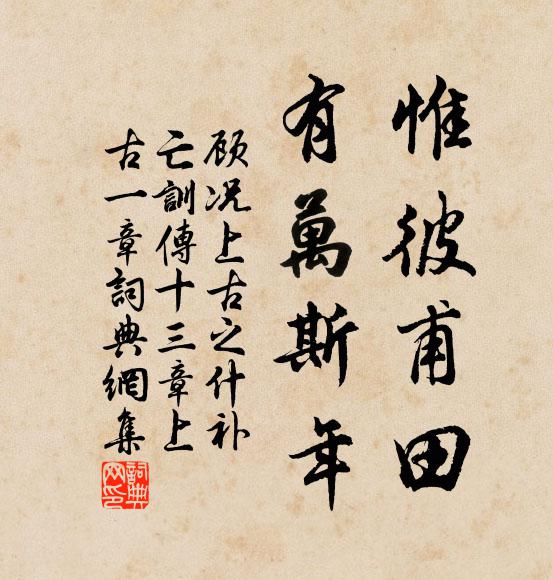 惟彼甫田
有萬斯年
顾况上古之什补
亡訓傳十三章上
古一章詞典網集
詞典网印